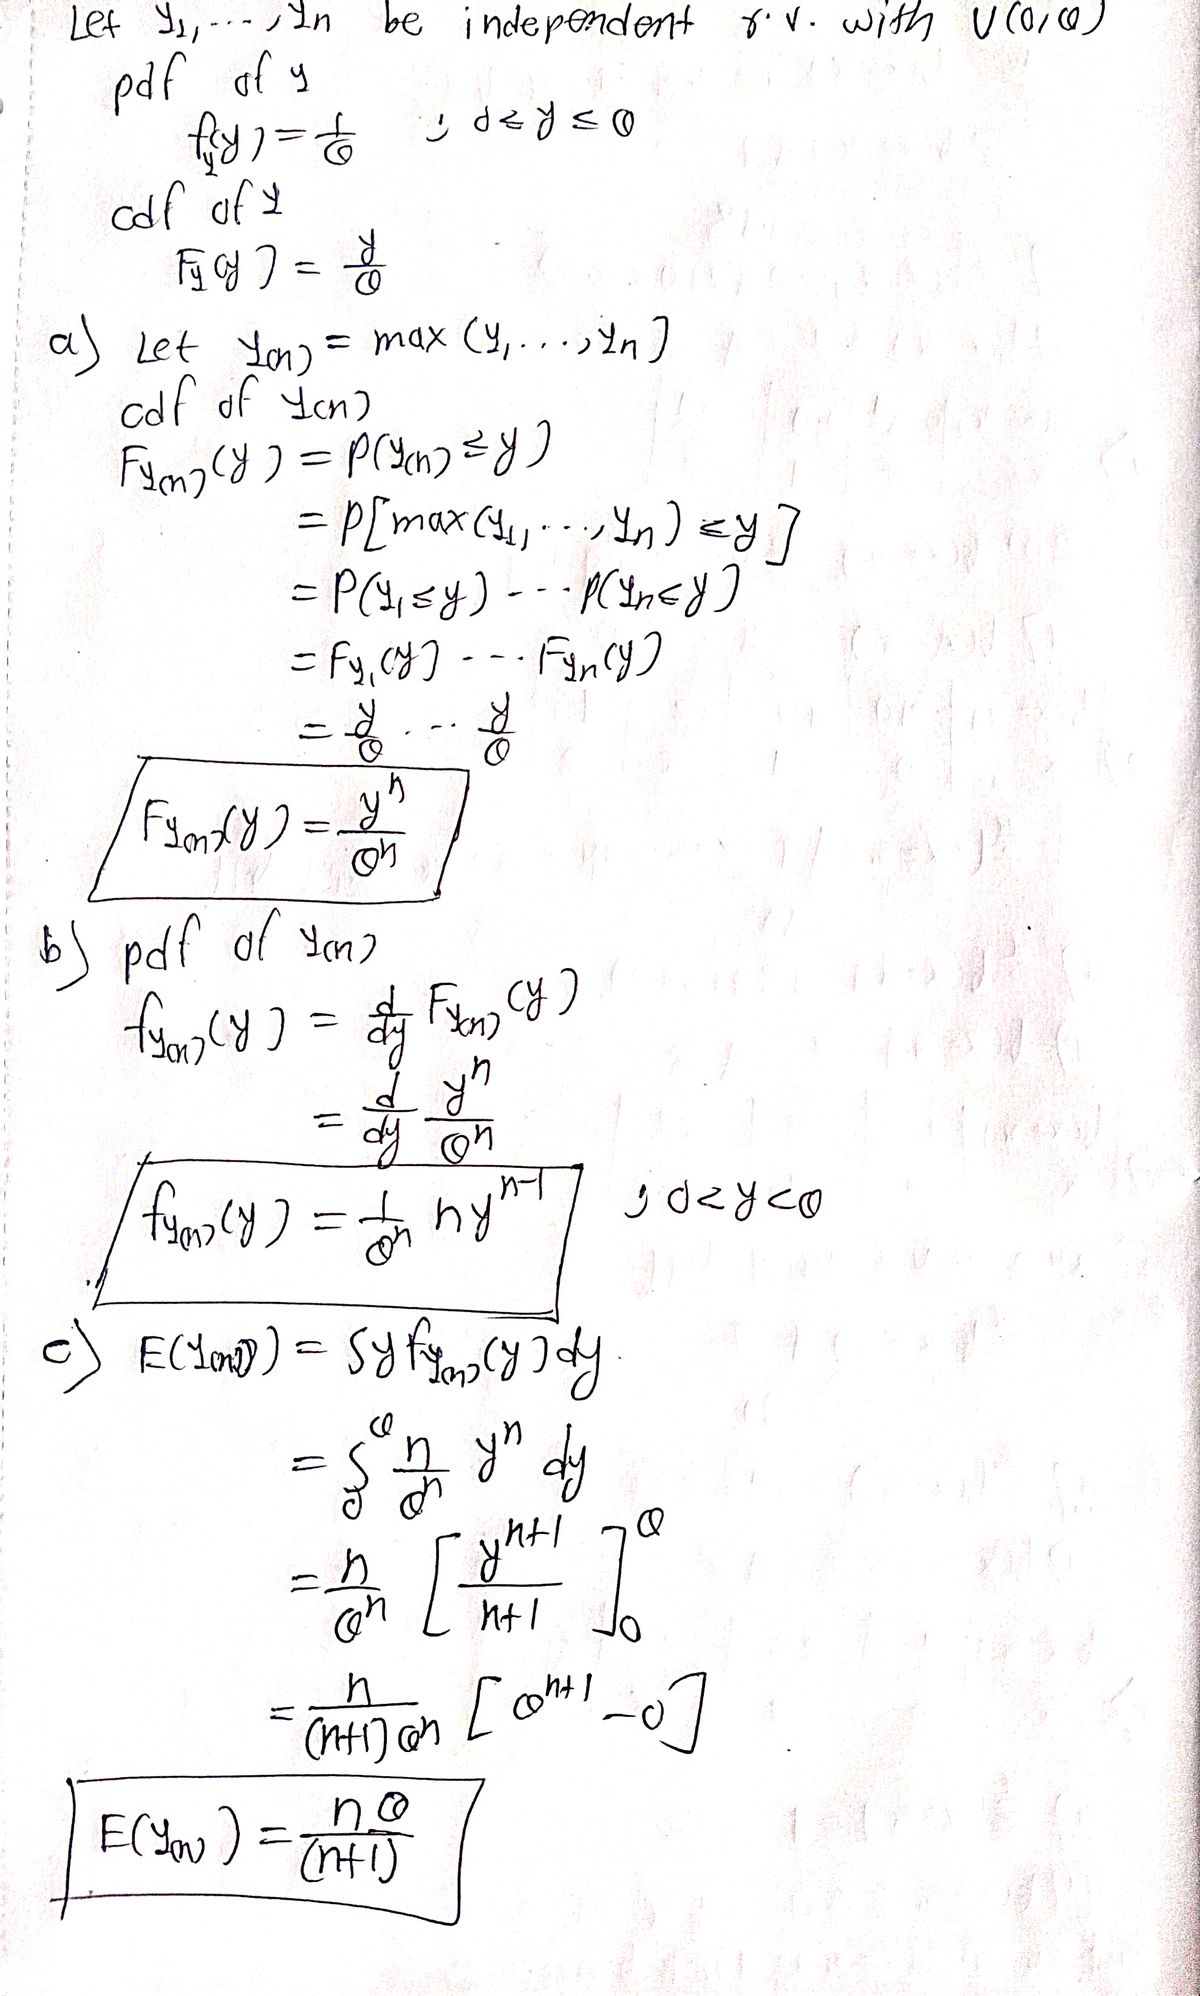 Let Y₁, ..., Yn be independent r.v. with U(0,θ)
pdf of y
f_Y(y) = 1/θ ; 0 ≤ y ≤ θ
cdf of Y
F_Y(y) = y/θ
a) Let Y(n) = max (Y₁, ..., Yn]
cdf of Y(n)
F_Y(n)(y) = P(Y(n) ≤ y)
= P[max(Y₁, ..., Yn) ≤ y]
= P(Y₁ ≤ y) --- P(Yn ≤ y)
= F_Y₁(y) --- F_Yn(y)
= y/θ ... y/θ
F_Y(n)(y) = yⁿ/θⁿ
b) pdf of Y(n)
f_Y(n)(y) = d/dy F_Y(n)(y)
= d/dy yⁿ/θⁿ
f_Y(n)(y) = 1/θⁿ n yⁿ⁻¹ ; 0 < y < θ
c) E(Y(n)) = ∫ y f_Y(n)(y) dy.
= ∫₀^θ n/θⁿ yⁿ dy
= n/θⁿ [yⁿ⁺¹/n+1]₀^θ
= n/(n+1)θⁿ [θⁿ⁺¹ - 0]
E(Y(n)) = nθ/(n+1)